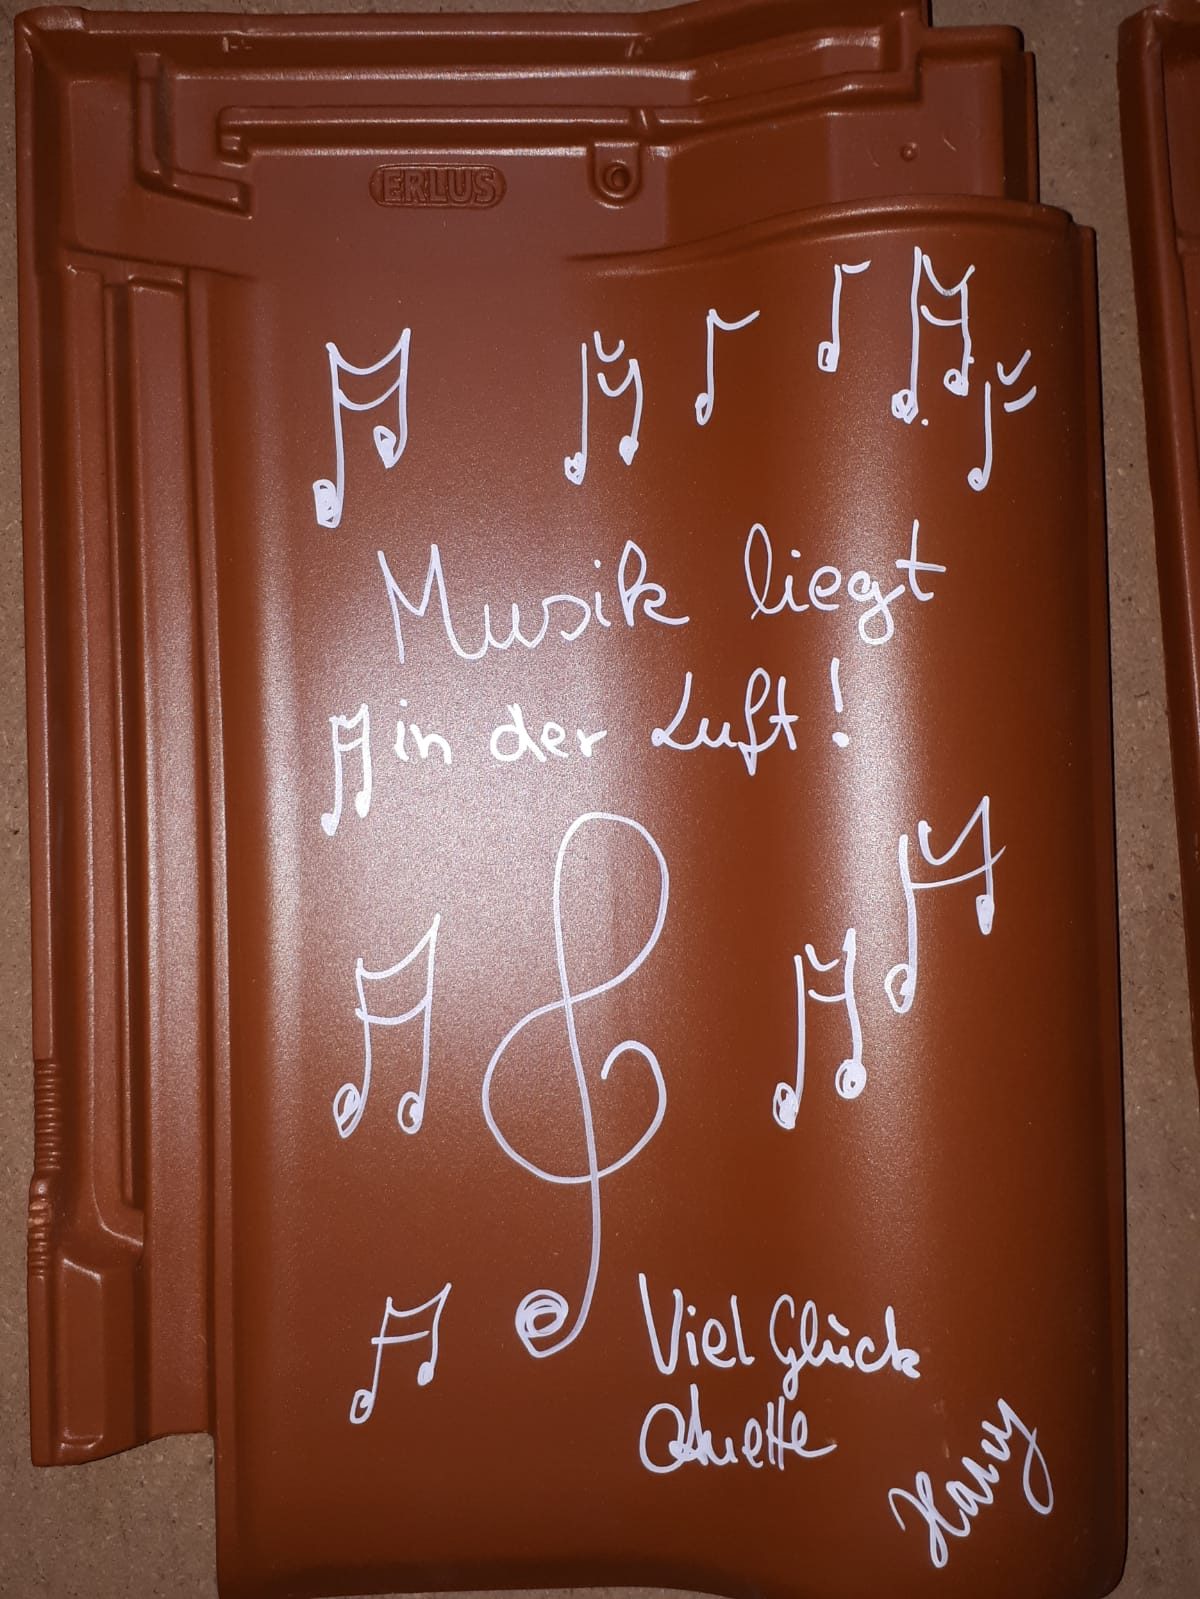 ERLUS
Musik liegt
in der Luft!
Viel Glück
Anette
Harry